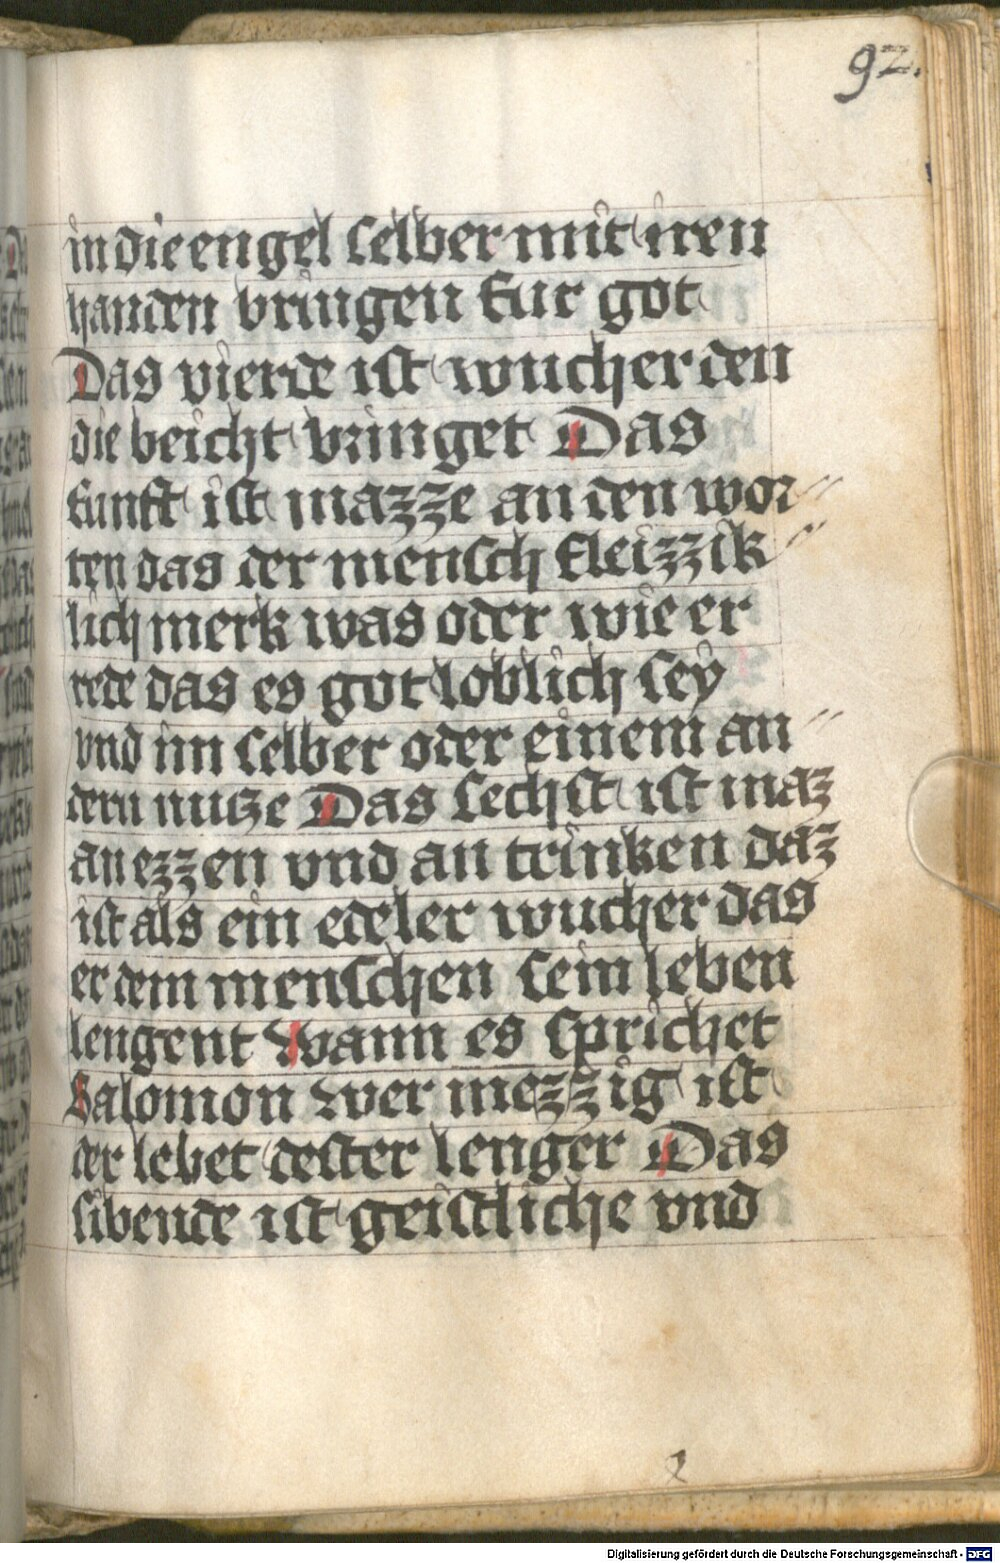 92.
in die engel selber mit iren
handen bringen fur got
Das vierde ist wucher den
die beicht bringet Das
funft ist mazze an den wor〃
ten das der mensch fleizzik〃
lich merk was oder wie er
rede das es got loblich sey
vnd im selber oder einem an〃
dern nutze Das sechst ist maz
an ezzen vnd an trinken daz
ist als ein edeler wucher das
er dem menschen sein leben
lengent Wann es sprichet
Salomon wer mezzig ist
der lebet dester lenger Das
sibende ist geistliche vnd
Digitalisierung gefördert durch die Deutsche Forschungsgemeinschaft - DFG